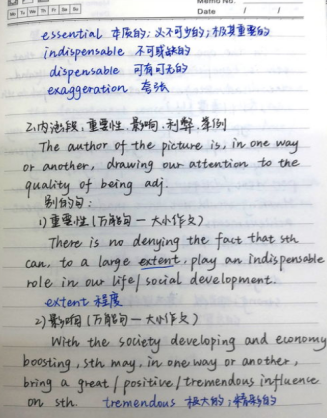 Memo No.
Mo Tu We Th Fr Sa Su
Date / /
essential 本质的;必不可少的;极其重要的
indispensable 不可或缺的
dispensable 可有可无的
exaggeration 夸张
2.内涵段:重要性.影响.利弊.举例
The author of the picture is, in one way
or another, drawing our attention to the
quality of being adj.
别的句:
1)重要性(万能句一大小作文)
There is no denying the fact that sth
can, to a large extent, play an indispensable
role in our life/social development.
extent 程度
2)影响(万能句一大小作文)
With the society developing and economy
boosting, sth may, in one way or another,
bring a great/positive/tremendous influence
on sth. tremendous 极大的;精彩的